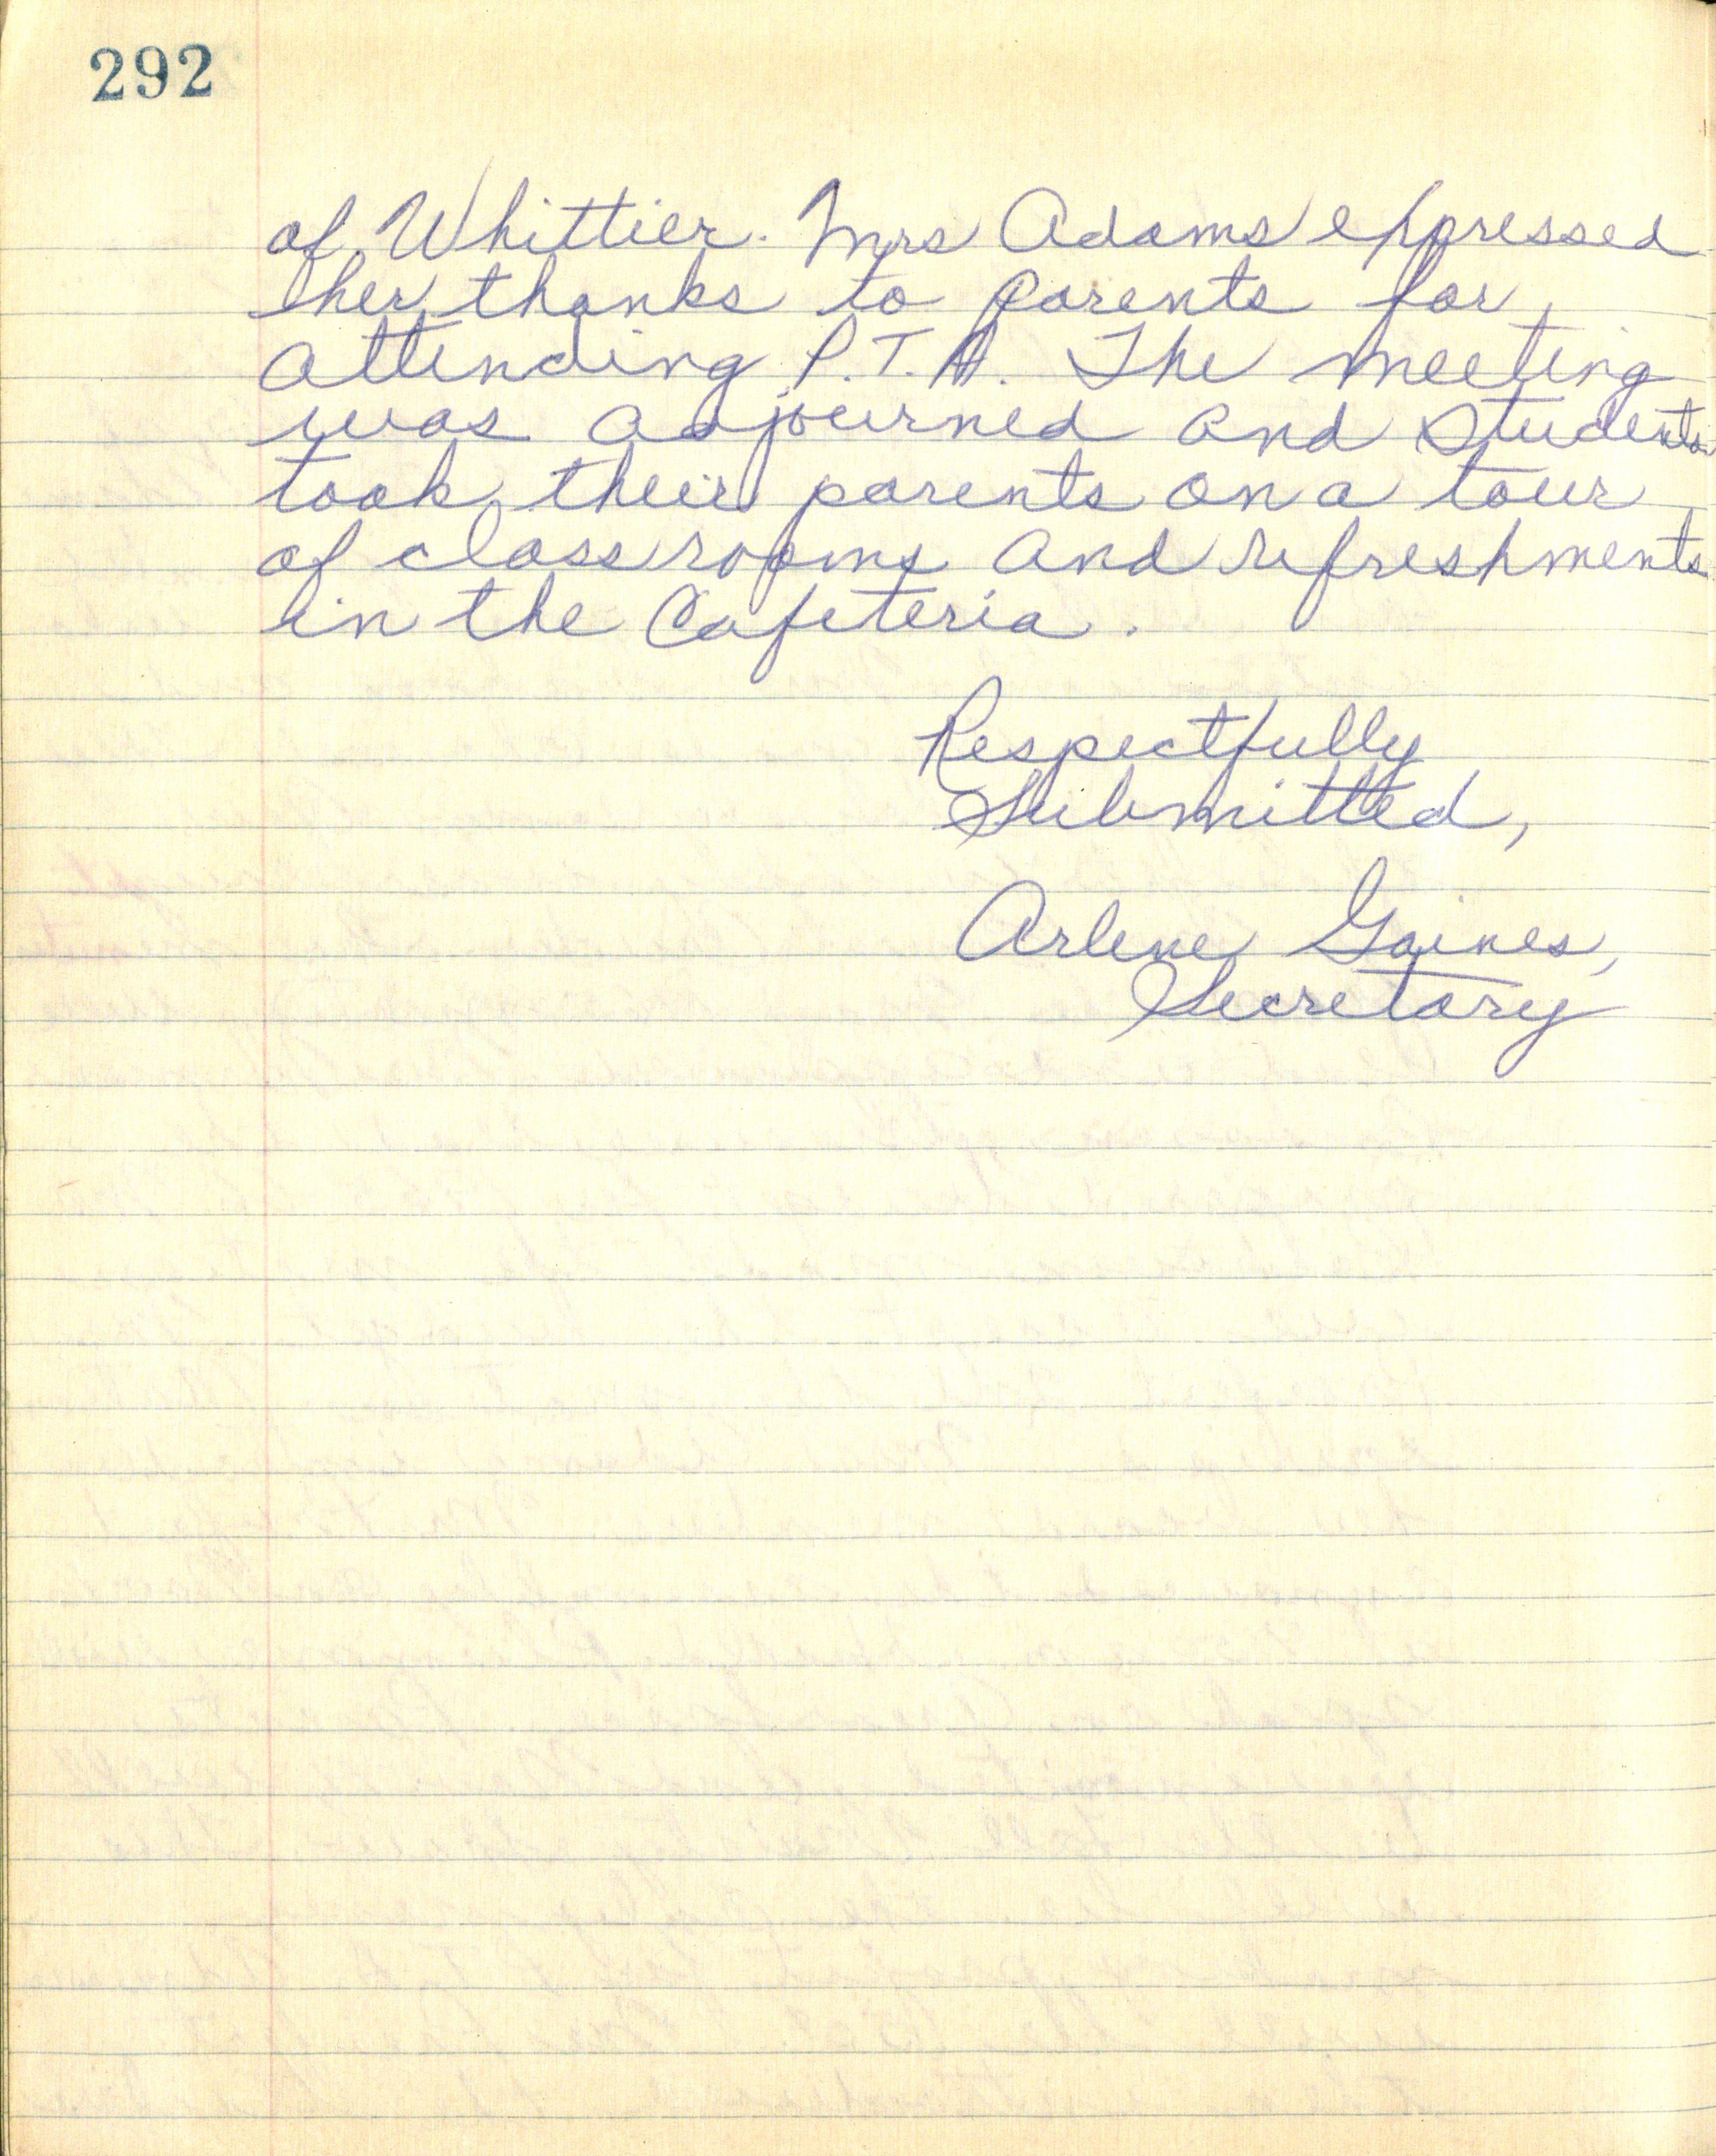 292
of Whittier. Mrs Adams expressed
her thanks to parents for
attending P.T.A. The meeting
was adjourned and students
took their parents on a tour
of class rooms and refreshments
in the Cafeteria.
Respectfully
Submitted,
Arlene Gaines,
Secretary